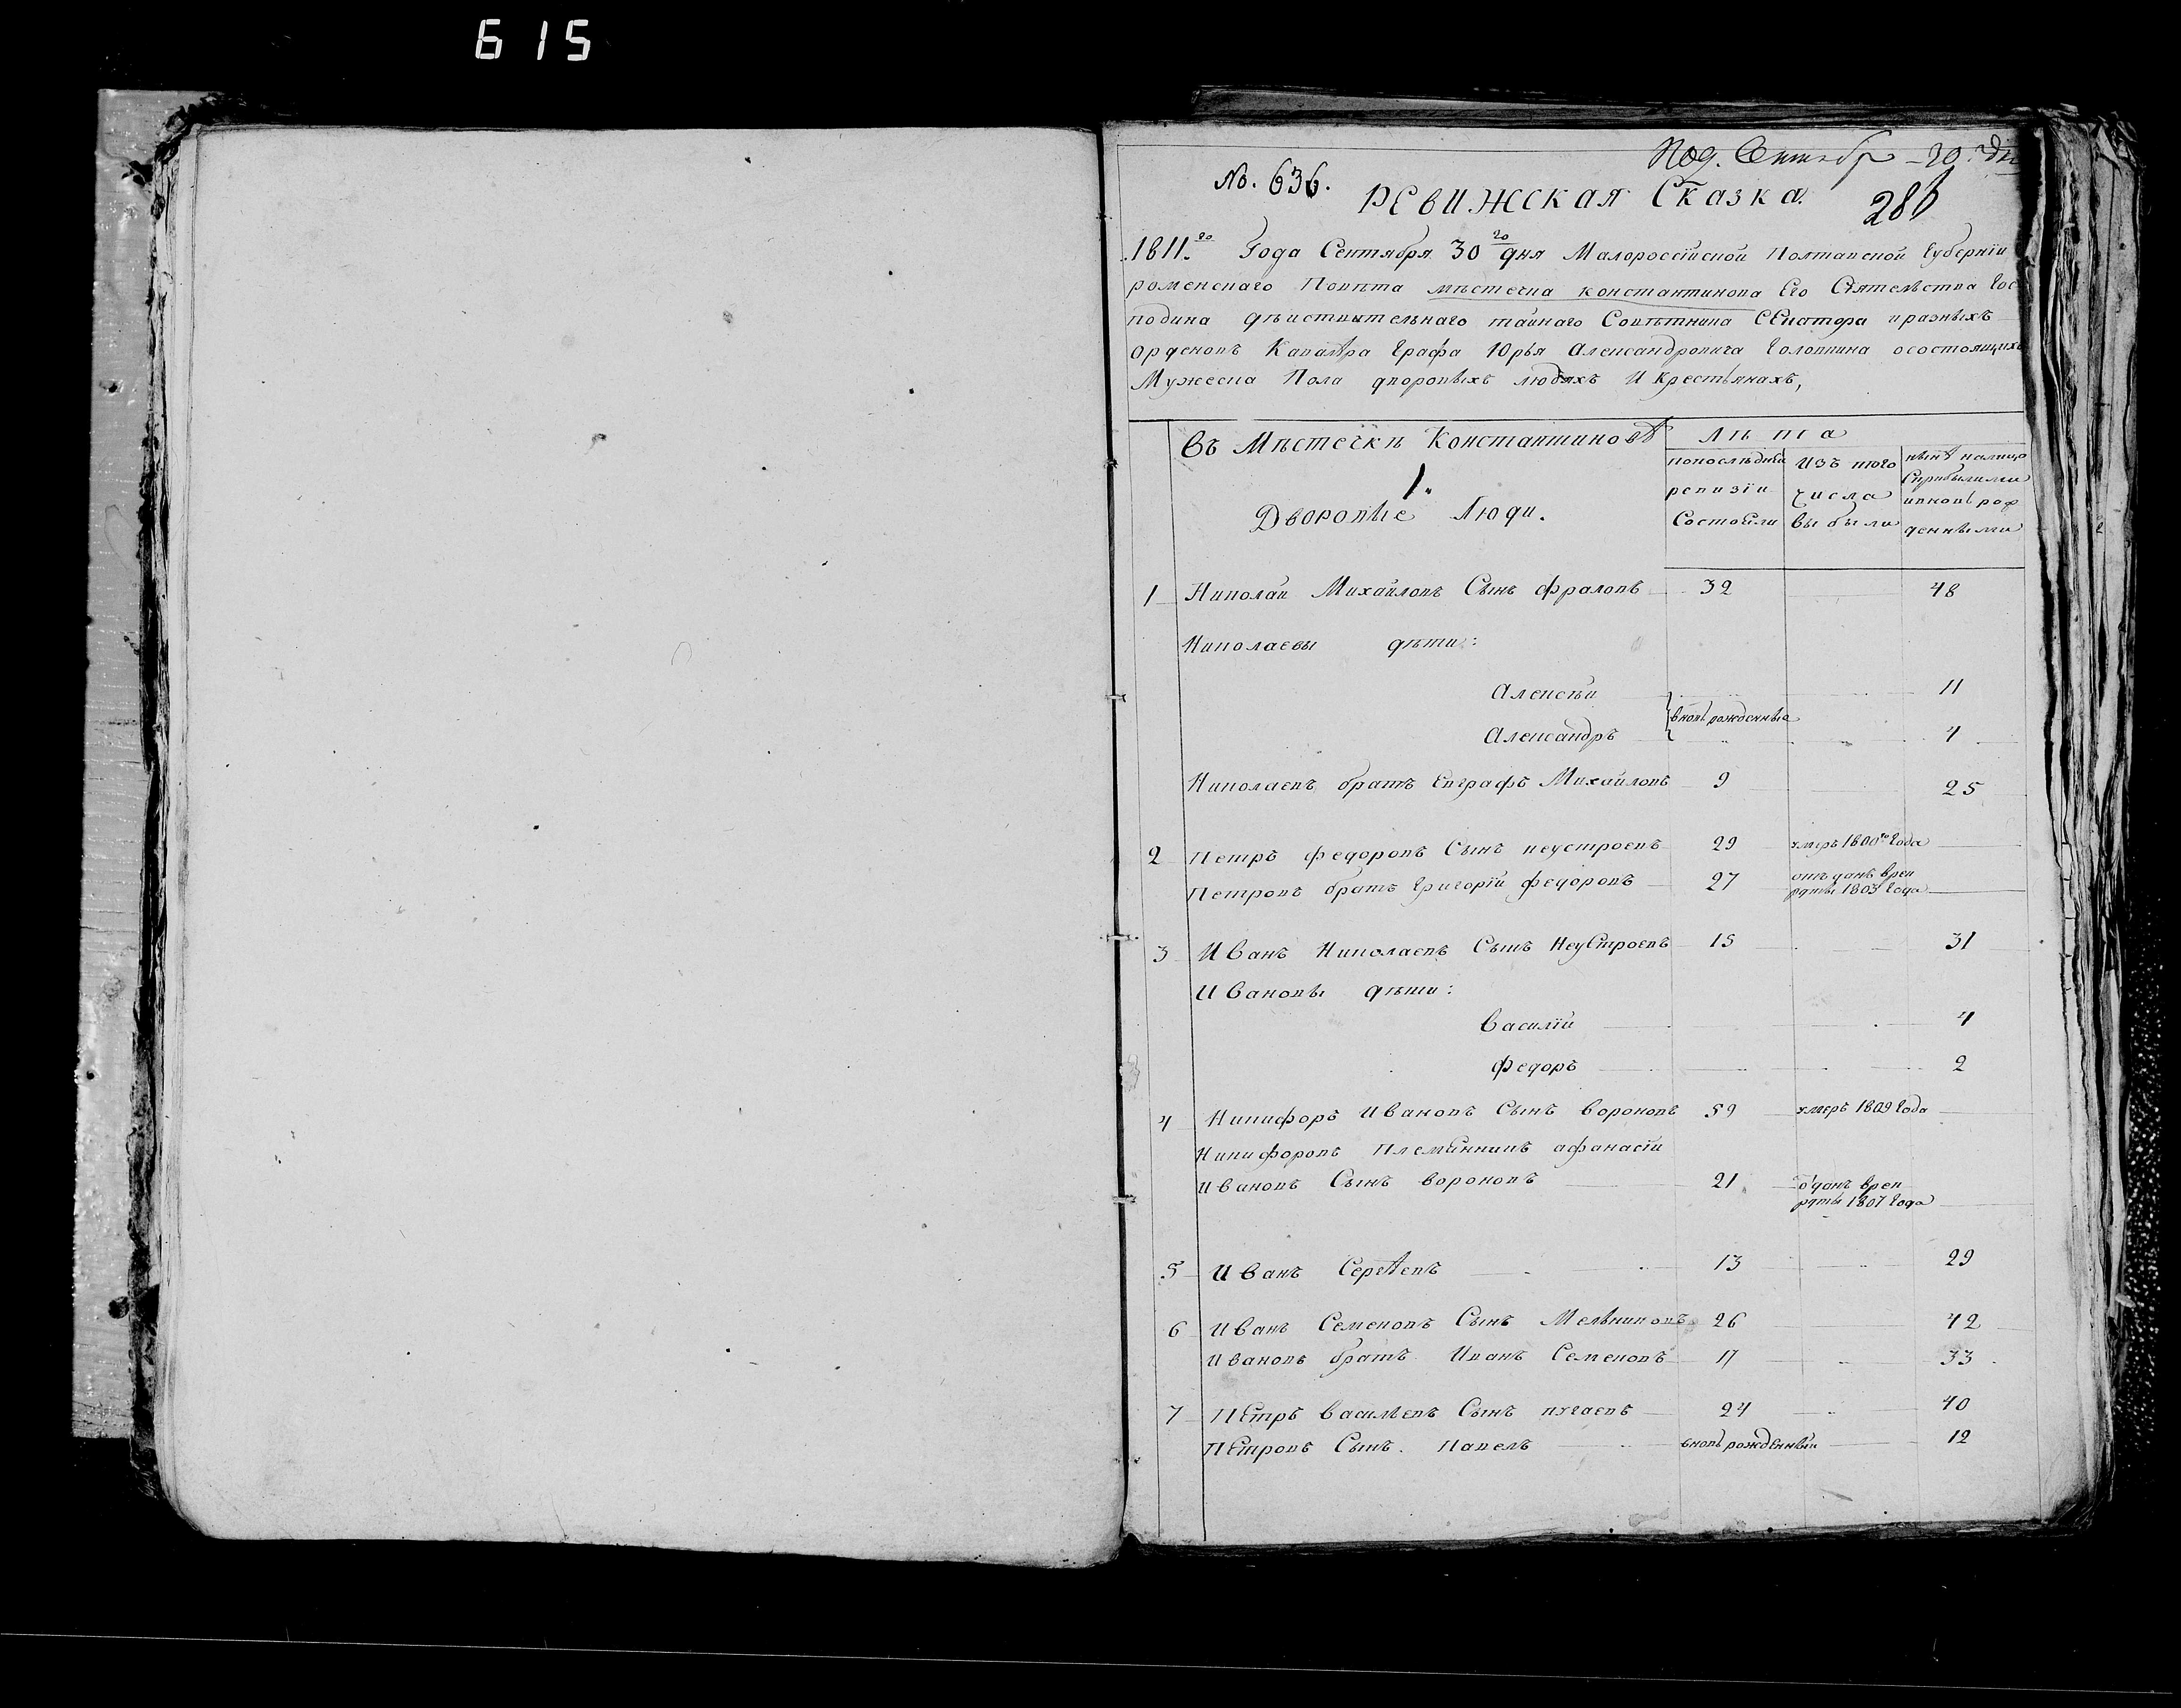 615
Под. Сентябр 20. дня
No. 636.
РЕВИЖСКАЯ Сказка.
286
1811.го Года Сентября 30го дня Малороссійской Полтавской Губерніи
роменскаго Повѣта мѣстечка константинова Его Сіятельства Гос
подина дѣиствительнаго таинаго Совѣтника Сенатора иразныхъ
орденовъ Кавалѣра Графа Юрья Александровича Головкина осостоящихъ
Мужеска Пола дворовыхъ людяхъ и крестьянахъ,
въ Мѣстечкѣ Константиновѣ
лѣта
1.
Дворовые Люди.
попослѣдней ревизіи Состояли
изъ того числа выбыли
нынѣ налицо Сприбылими ивновь рожденными
1 Николай Михайловъ Сынъ фраловъ 32 48
Николаевы дѣти:
Алексѣй 11
вновь рожденные
Александръ 4
Николаевъ братъ Евграфъ Михайловъ 9 25
2 Петръ федоровъ Сынъ неустроевъ 29 умеръ 1800го Года
Петровъ братъ Григорій федоровъ 27 отъданъ врек
рүты 1803 Года
3 Иванъ Николаевъ Сынъ Неустроевъ 15 31
Ивановы дѣти:
василій 4
федоръ 2
4 Никифоръ Ивановъ Сынъ вороновъ 59 умеръ 1809 Года
Никифоровъ Племянникъ афанасій
Ивановъ Сынъ вороновъ 21 о'данъ врек
руты 1807 Года
5 Иванъ Сергѣевъ 13 29
6 Иванъ Семеновъ Сынъ Мельниковъ 26 42
Ивановъ братъ Иванъ Семеновъ 17 33
7 Петръ васильевъ Сынъ пугаевъ 24 40
Петровъ Сынъ Павелъ вновь рожденный 12